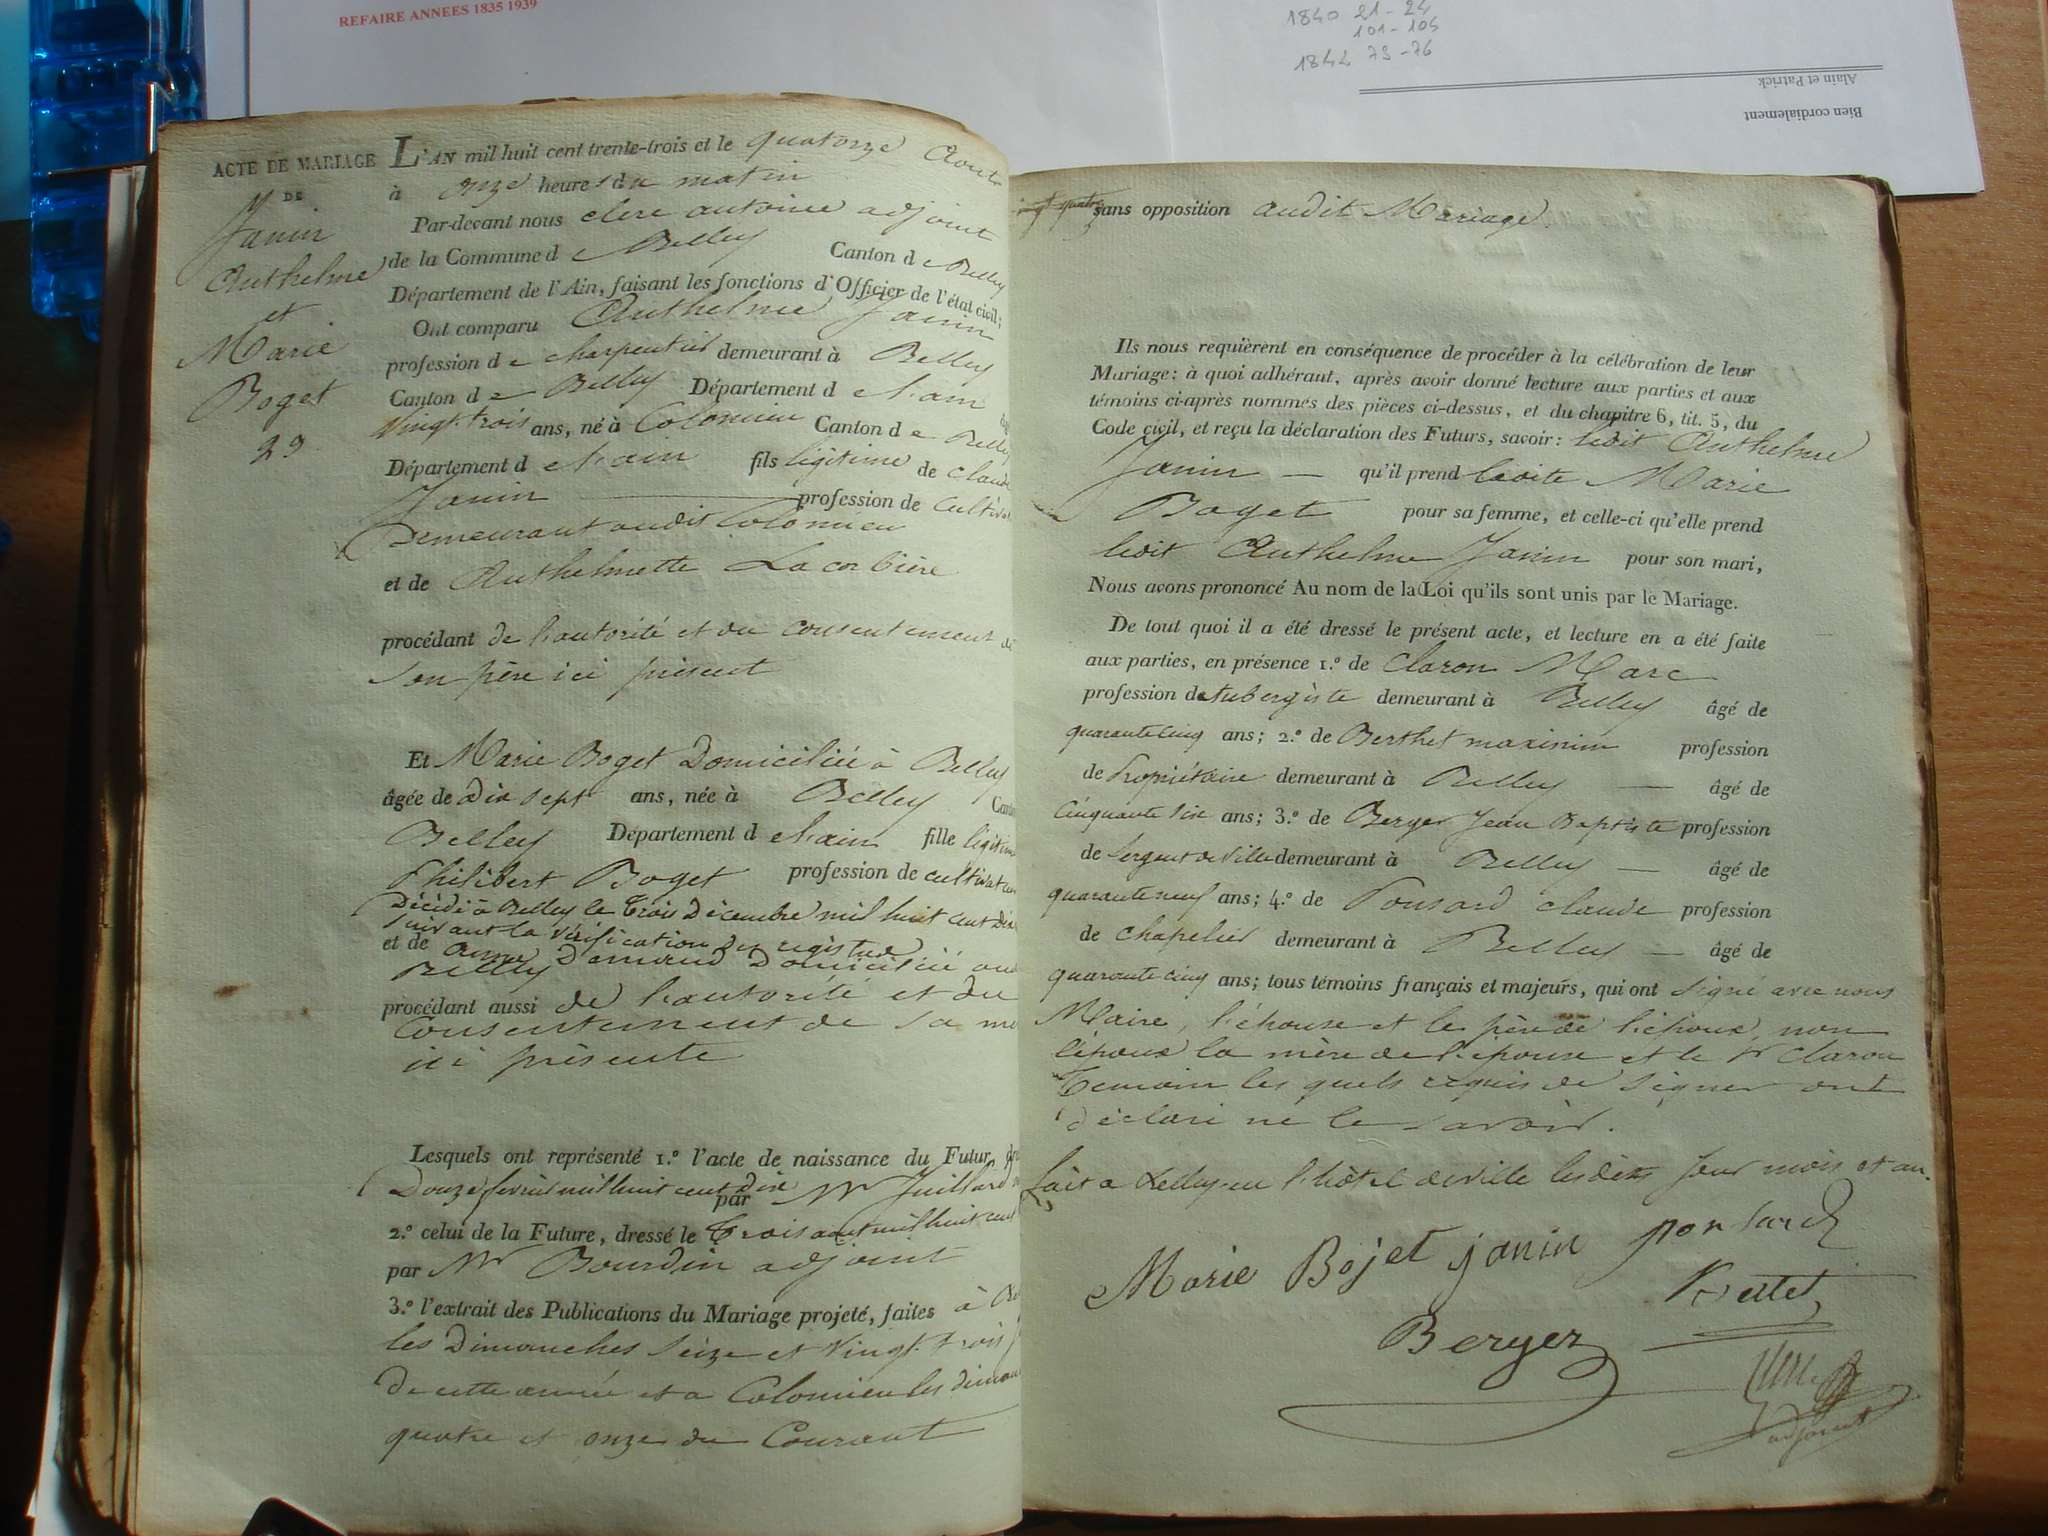 REFAIRE ANNEES 1835 1939
1840 21-24
101-104
1842 73-76
Alain et Patrick
Bien cordialement
ACTE DE MARIAGE
DE
Janin
Anthelme
et
Marie
Boget
23
L'AN mil huit cent trente-trois et le quatorze Aout
à onze heures du matin
Par-devant nous clerc antoine adjoint
de la Commune de Belley Canton de Belley
Département de l'Ain, faisant les fonctions d'Officier de l'état civil;
Ont comparu Anthelme Janin
profession de charpentier demeurant à Belley
Canton de Belley Département de l'ain
Vingt-trois ans, né à Colomieu Canton de Belley
Département de l'ain fils légitime de Claude
Janin profession de Cultivat
Demeurant audit Colomieu
et de Anthelmette Lacorbière
procédant de l'autorité et du consentement de
son père ici présent
Et Marie Boget Domiciliée à Belley
âgée de dix sept ans, née à Belley Canton
Belley Département de l'ain fille légitime
Philibert Boget profession de cultivateur
Décédé à Belley le trois Décembre mil huit cent dix
suivant la vérification des registres
et de Domiciliée aud
Belley
procédant aussi de l'autorité et du
Consentement de sa mè
ici présente
Lesquels ont représenté 1.° l'acte de naissance du Futur,
Douze février mil huit cent dix par Mr Juillard
2.° celui de la Future, dressé le Trois aout mil huit cent
par Mr Bourdin adjoint
3.° l'extrait des Publications du Mariage projeté, faites à Be
les Dimanches seize et Vingt-trois
De cette année et a Colomieu les diman
quatre et onze du Courant
sans opposition audit Mariage.
Ils nous requièrent en conséquence de procéder à la célébration de leur
Mariage: à quoi adhérant, après avoir donné lecture aux parties et aux
témoins ci-après nommés des pièces ci-dessus, et du chapitre 6, tit. 5, du
Code civil, et reçu la déclaration des Futurs, savoir: ledit Anthelme
Janin — qu'il prend ladite Marie
Boget pour sa femme, et celle-ci qu'elle prend
ledit Anthelme Janin pour son mari,
Nous avons prononcé Au nom de la Loi qu'ils sont unis par le Mariage.
De tout quoi il a été dressé le présent acte, et lecture en a été faite
aux parties, en présence 1.° de Claron Marc
profession d'Aubergiste demeurant à Belley âgé de
quarante cinq ans; 2.° de Berthet maximin profession
de Propriétaire demeurant à Belley — âgé de
Cinquante six ans; 3.° de Berger Jean Baptiste profession
de Sergent de Ville demeurant à Belley — âgé de
quarante neuf ans; 4.° de Ponsard Claude profession
de Chapelier demeurant à Belley — âgé de
quarante cinq ans; tous témoins français et majeurs, qui ont signé avec nous
Maire, l'épouse et le père de l'époux, non
l'époux la mère de l'épouse et le Sr Claron
témoin les quels requis de signer ont
déclaré ne le savoir.
fait a Belley en l'hôtel de ville les dits jour mois et an.
Marie Bojet janin ponsard
Bertet
Berger
adjoint